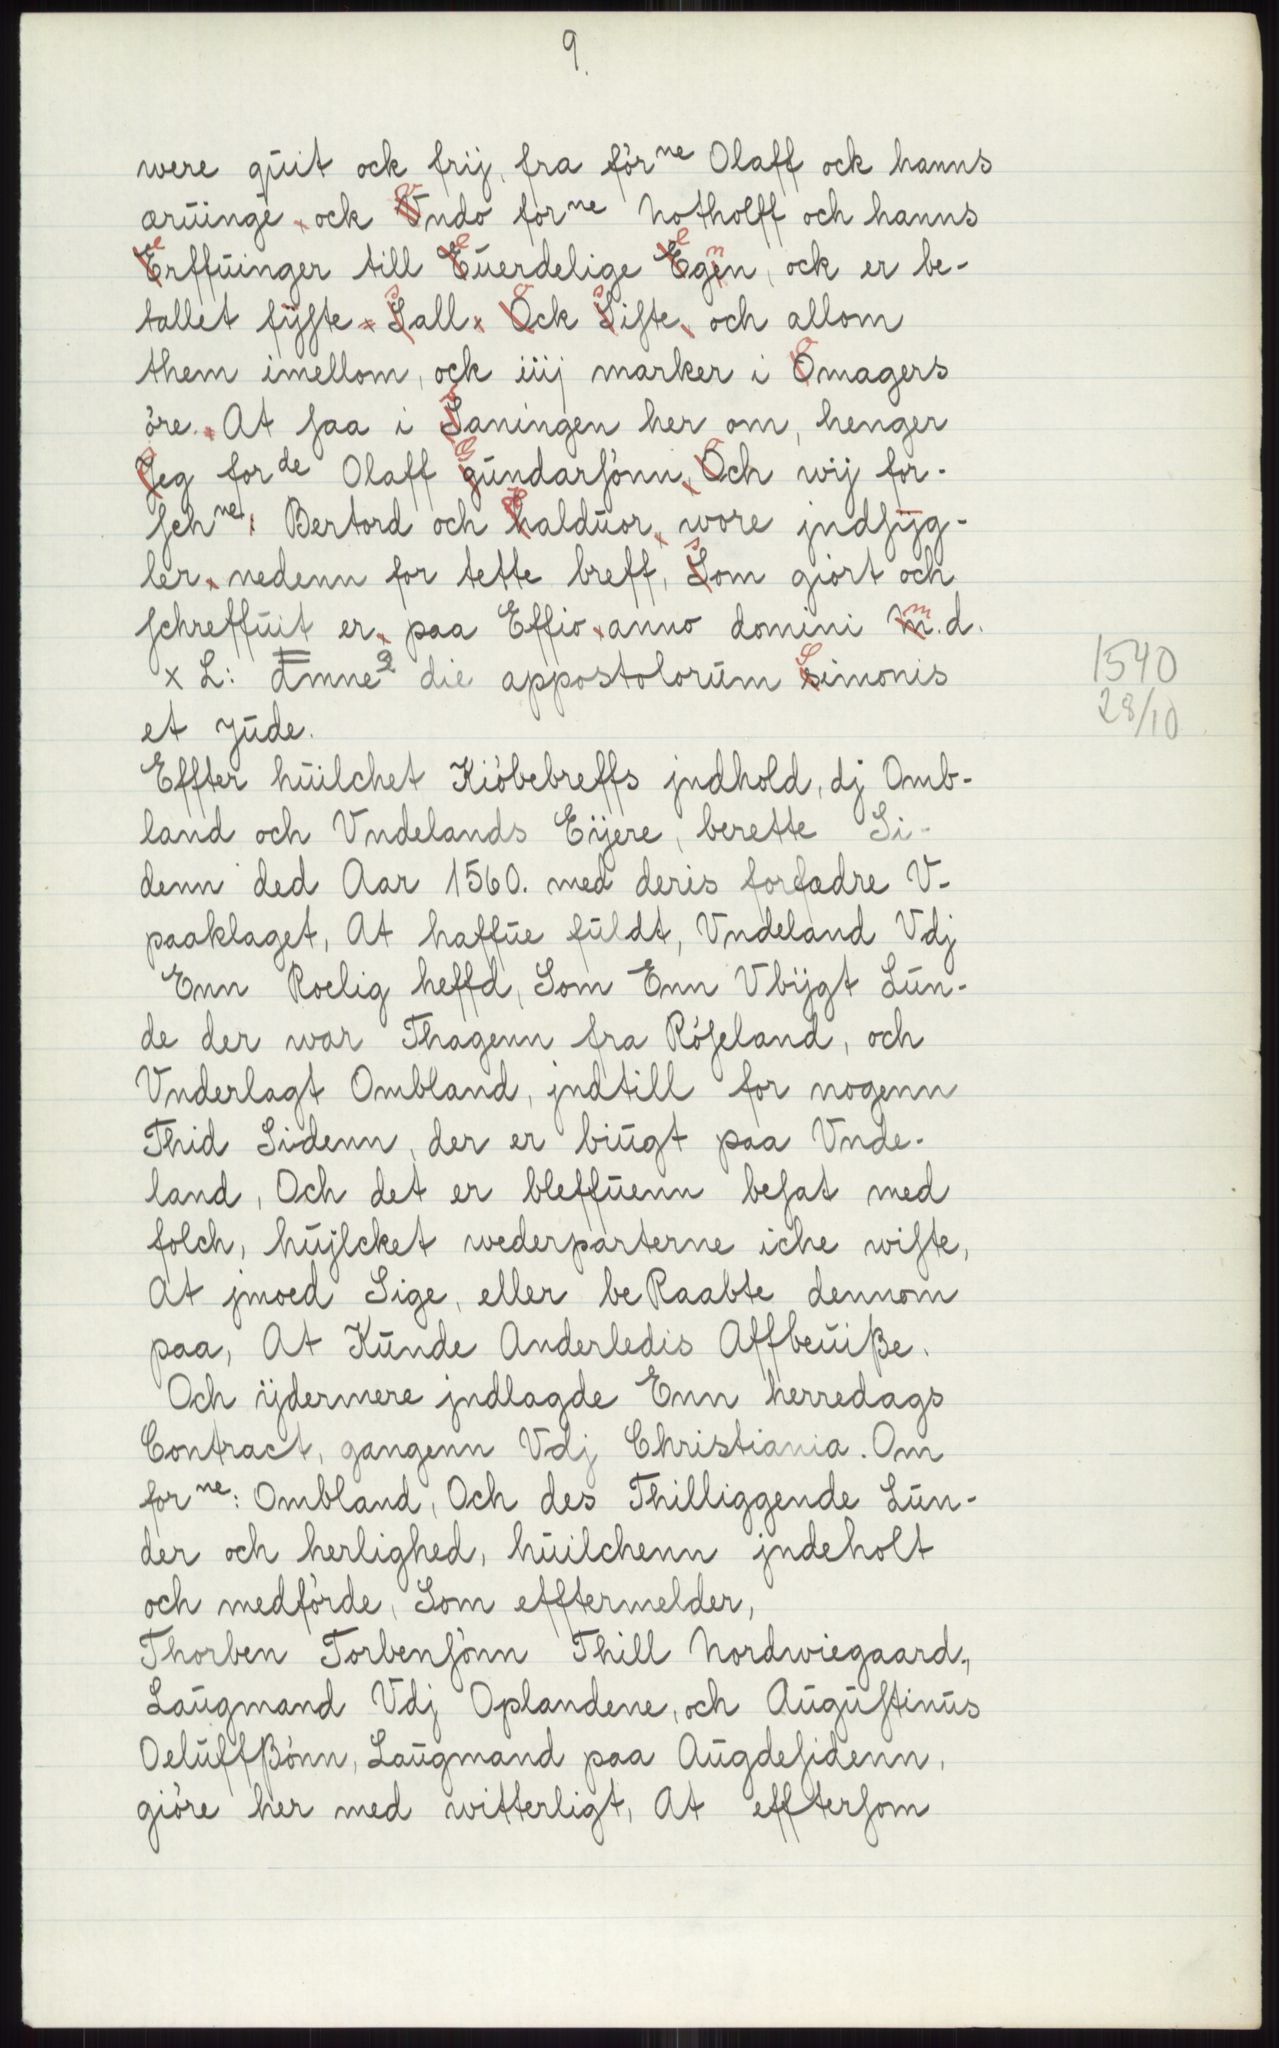 9.
were quit ock frij, fra förne Olaff ock hanns
æruinge ock Vndo forne Notholff och hanns
Erffuinger till Euerdelige Egen, ock er be-
tallet fyste Sall Ock Siste och allom
them imellom, ock iiij marker i Omagers
öre. At saa i Saningen her om, henger
Jeg forde Olaff gundarsönn, Och wij for-
schne: Bertord och halduor, wore jndsyg-
ler, nedenn for tette breff, Som giort och
schreffuit er, paa Effio anno domini m.d.
x L: die appostolorum simonis
et jude.
1540
28/10
Effter huilchet Kiöbebreffs jndhold, dj Omb-
land och Vndelands Eijere, berette Si-
denn ded Aar 1560. med deris forfædre V-
paaklaget, At haffue fuldt, Vndeland Vdj
Enn Roelig heffd, Som Enn Vbygt Lun-
de der war Thagenn fra Röseland, och
Vnderlagt Ombland, jndtill for nogenn
Thid Sidenn, der er biugt paa Vnde-
land, Och det er bleffuenn besat med
folch, hujlcket wederparterne iche wiste,
At jmoed Sige, eller beRaabte dennom
paa, At Kunde Anderledis Affbeuiße.
Och ijdermere jndlagde Enn herredags
Contract, gangenn Vdj Christiania. Om
forne: Ombland, Och des Thilliggende Lun-
der och herlighed, huilchenn jndeholt
och medförde, Som efftermelder,
Thorben Torbensönn Thill Nordwiegaard,
Laugmand Vdj Oplandene, och Augustinus
Oeluffßönn, Laugmand paa Augdesidenn,
giöre her med witterligt, At efftersom